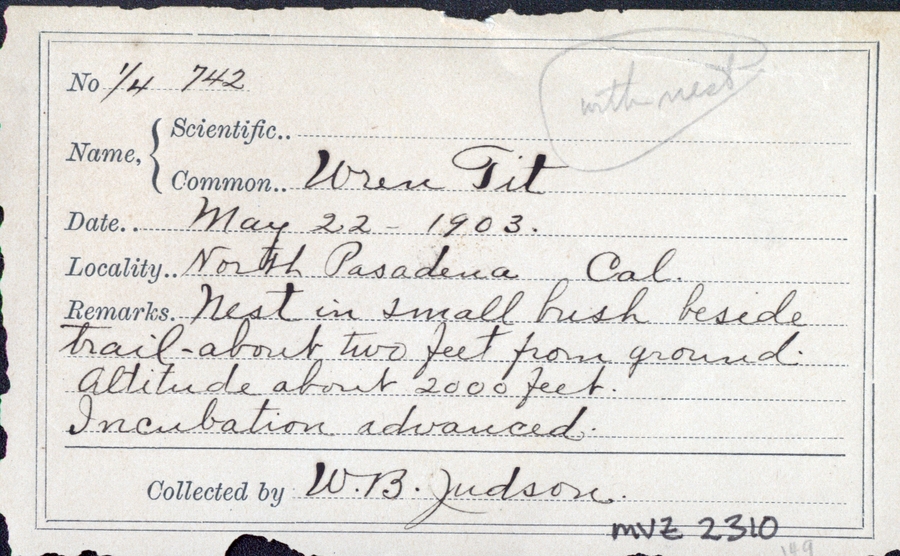 No 1/4 742
with nest
Name, { Scientific..
Common.. Wren Tit
Date.. May 22 - 1903.
Locality.. North Pasadena Cal.
Remarks. Nest in small bush beside
trail-about two feet from ground.
Altitude about 2000 feet.
Incubation advanced.
Collected by W.B. Judson.
MVZ 2310
149